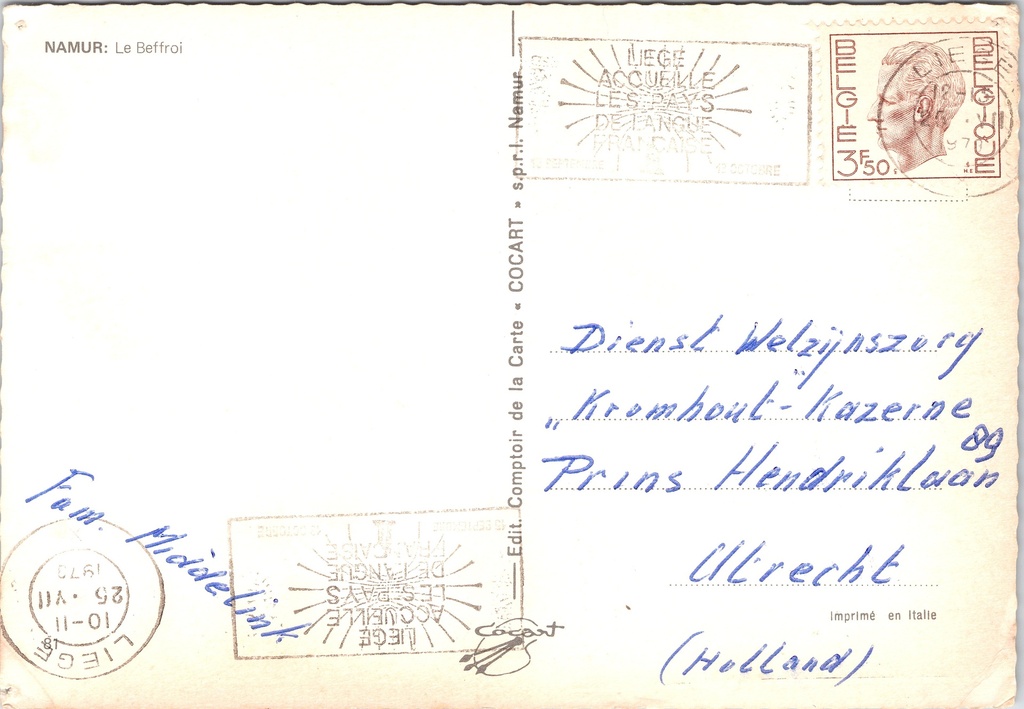 NAMUR: Le Beffroi
LIEGE
ACCUEILLE
LES PAYS
DE LANGUE
FRANÇAISE
12 SEPTEMBRE 12 OCTOBRE
BELGIE BELGIQUE
3F50
LIEGE
Edit. Comptoir de la Carte « COCART » s.p.r.l. Namur
Dienst Welzijnszorg
„Kromhout-Kazerne"
89
Prins Hendriklaan
Utrecht
(Holland)
Imprimé en Italie
Fam. Middelink
LIEGE
10-11
25 · VII
1973
LIEGE
ACCUEILLE
LES PAYS
DE LANGUE
FRANÇAISE
Cocart